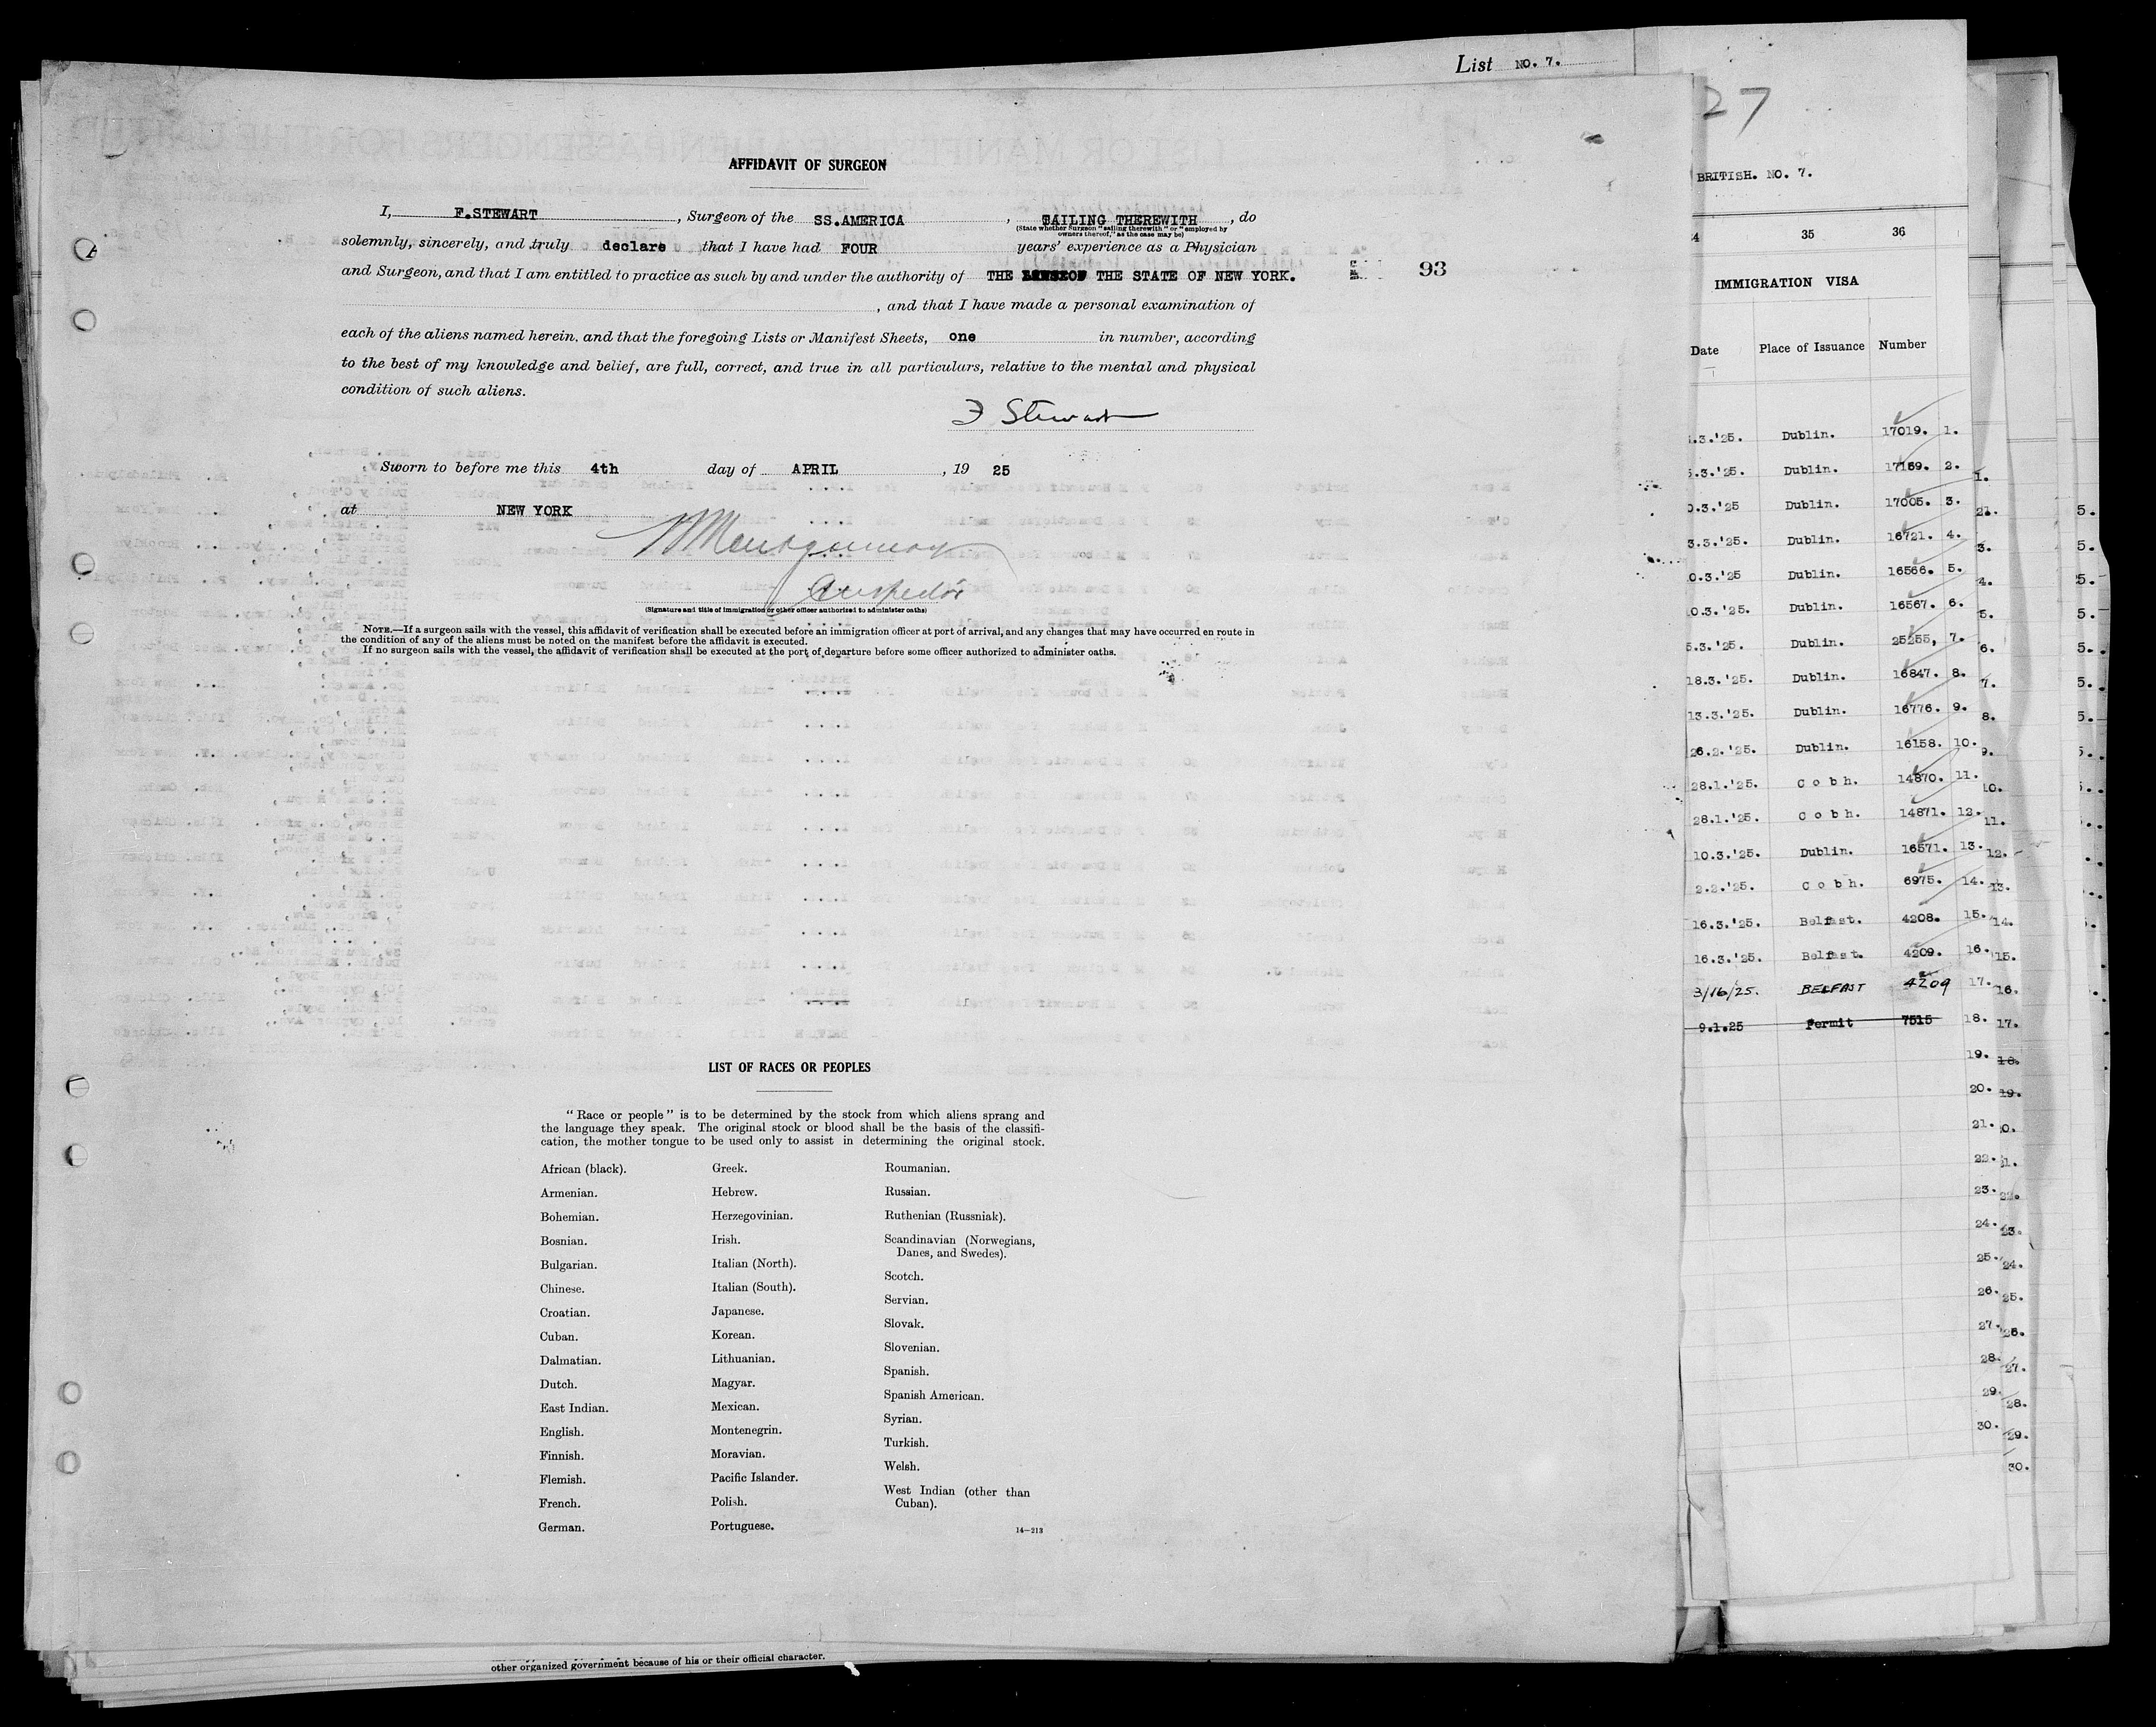 List NO. 7.
27
BRITISH. NO. 7.
AFFIDAVIT OF SURGEON
I, F.STEWART, Surgeon of the SS.AMERICA, SAILING THEREWITH, do
(State whether Surgeon "sailing therewith" or "employed by
owners thereof," as the case may be)
solemnly, sincerely, and truly declare that I have had FOUR years' experience as a Physician
and Surgeon, and that I am entitled to practice as such by and under the authority of THE THE STATE OF NEW YORK.
93
, and that I have made a personal examination of
each of the aliens named herein, and that the foregoing Lists or Manifest Sheets, one in number, according
to the best of my knowledge and belief, are full, correct, and true in all particulars, relative to the mental and physical
condition of such aliens.
F Stewart
Sworn to before me this 4th day of APRIL, 19 25
at NEW YORK
Montgomery
Inspector
(Signature and title of immigration or other officer authorized to administer oaths)
NOTE.—If a surgeon sails with the vessel, this affidavit of verification shall be executed before an immigration officer at port of arrival, and any changes that may have occurred en route in
the condition of any of the aliens must be noted on the manifest before the affidavit is executed.
If no surgeon sails with the vessel, the affidavit of verification shall be executed at the port of departure before some officer authorized to administer oaths.
LIST OF RACES OR PEOPLES
"Race or people" is to be determined by the stock from which aliens sprang and
the language they speak. The original stock or blood shall be the basis of the classifi-
cation, the mother tongue to be used only to assist in determining the original stock.
African (black).
Armenian.
Bohemian.
Bosnian.
Bulgarian.
Chinese.
Croatian.
Cuban.
Dalmatian.
Dutch.
East Indian.
English.
Finnish.
Flemish.
French.
German.
Greek.
Hebrew.
Herzegovinian.
Irish.
Italian (North).
Italian (South).
Japanese.
Korean.
Lithuanian.
Magyar.
Mexican.
Montenegrin.
Moravian.
Pacific Islander.
Polish.
Portuguese.
Roumanian.
Russian.
Ruthenian (Russniak).
Scandinavian (Norwegians,
Danes, and Swedes).
Scotch.
Servian.
Slovak.
Slovenian.
Spanish.
Spanish American.
Syrian.
Turkish.
Welsh.
West Indian (other than
Cuban).
14—213
other organized government because of his or their official character.
4 35 36
IMMIGRATION VISA
Date Place of Issuance Number
.3.'25. Dublin. 17019. 1.
5.3.'25. Dublin. 17159. 2.
0.3.'25 Dublin. 17005. 3.
3.3.'25. Dublin. 16721. 4.
0.3.'25 Dublin. 16566. 5.
0.3.'25. Dublin. 16567. 6.
5.3.'25. Dublin. 25255, 7.
18.3.'25. Dublin. 16847. 8.
13.3.'25. Dublin. 16776. 9.
26.2.'25. Dublin. 16158. 10.
28.1.'25. Cobh. 14870. 11.
28.1.'25. Cobh. 14871. 12.
10.3.'25. Dublin. 16571. 13.
2.2.'25. Cobh. 6975. 14.
16.3.'25. Belfast. 4208. 15.
16.3.'25. Belfast. 4209. 16.
3/16/25. BELFAST 4209 17.
9.1.25 Permit 7515 18.
19.
20.
21.
22.
23.
24.
25.
26.
27.
28.
29.
30.
1.
21.
3.
4.
5.
6.
7.
8.
9.
10.
11.
12.
13.
14.
15.
16.
17.
18.
19.
0.
1.
22.
23.
24.
25.
26.
27.
28.
29.
30.
5.
5.
5.
5.
5.
5.
5.